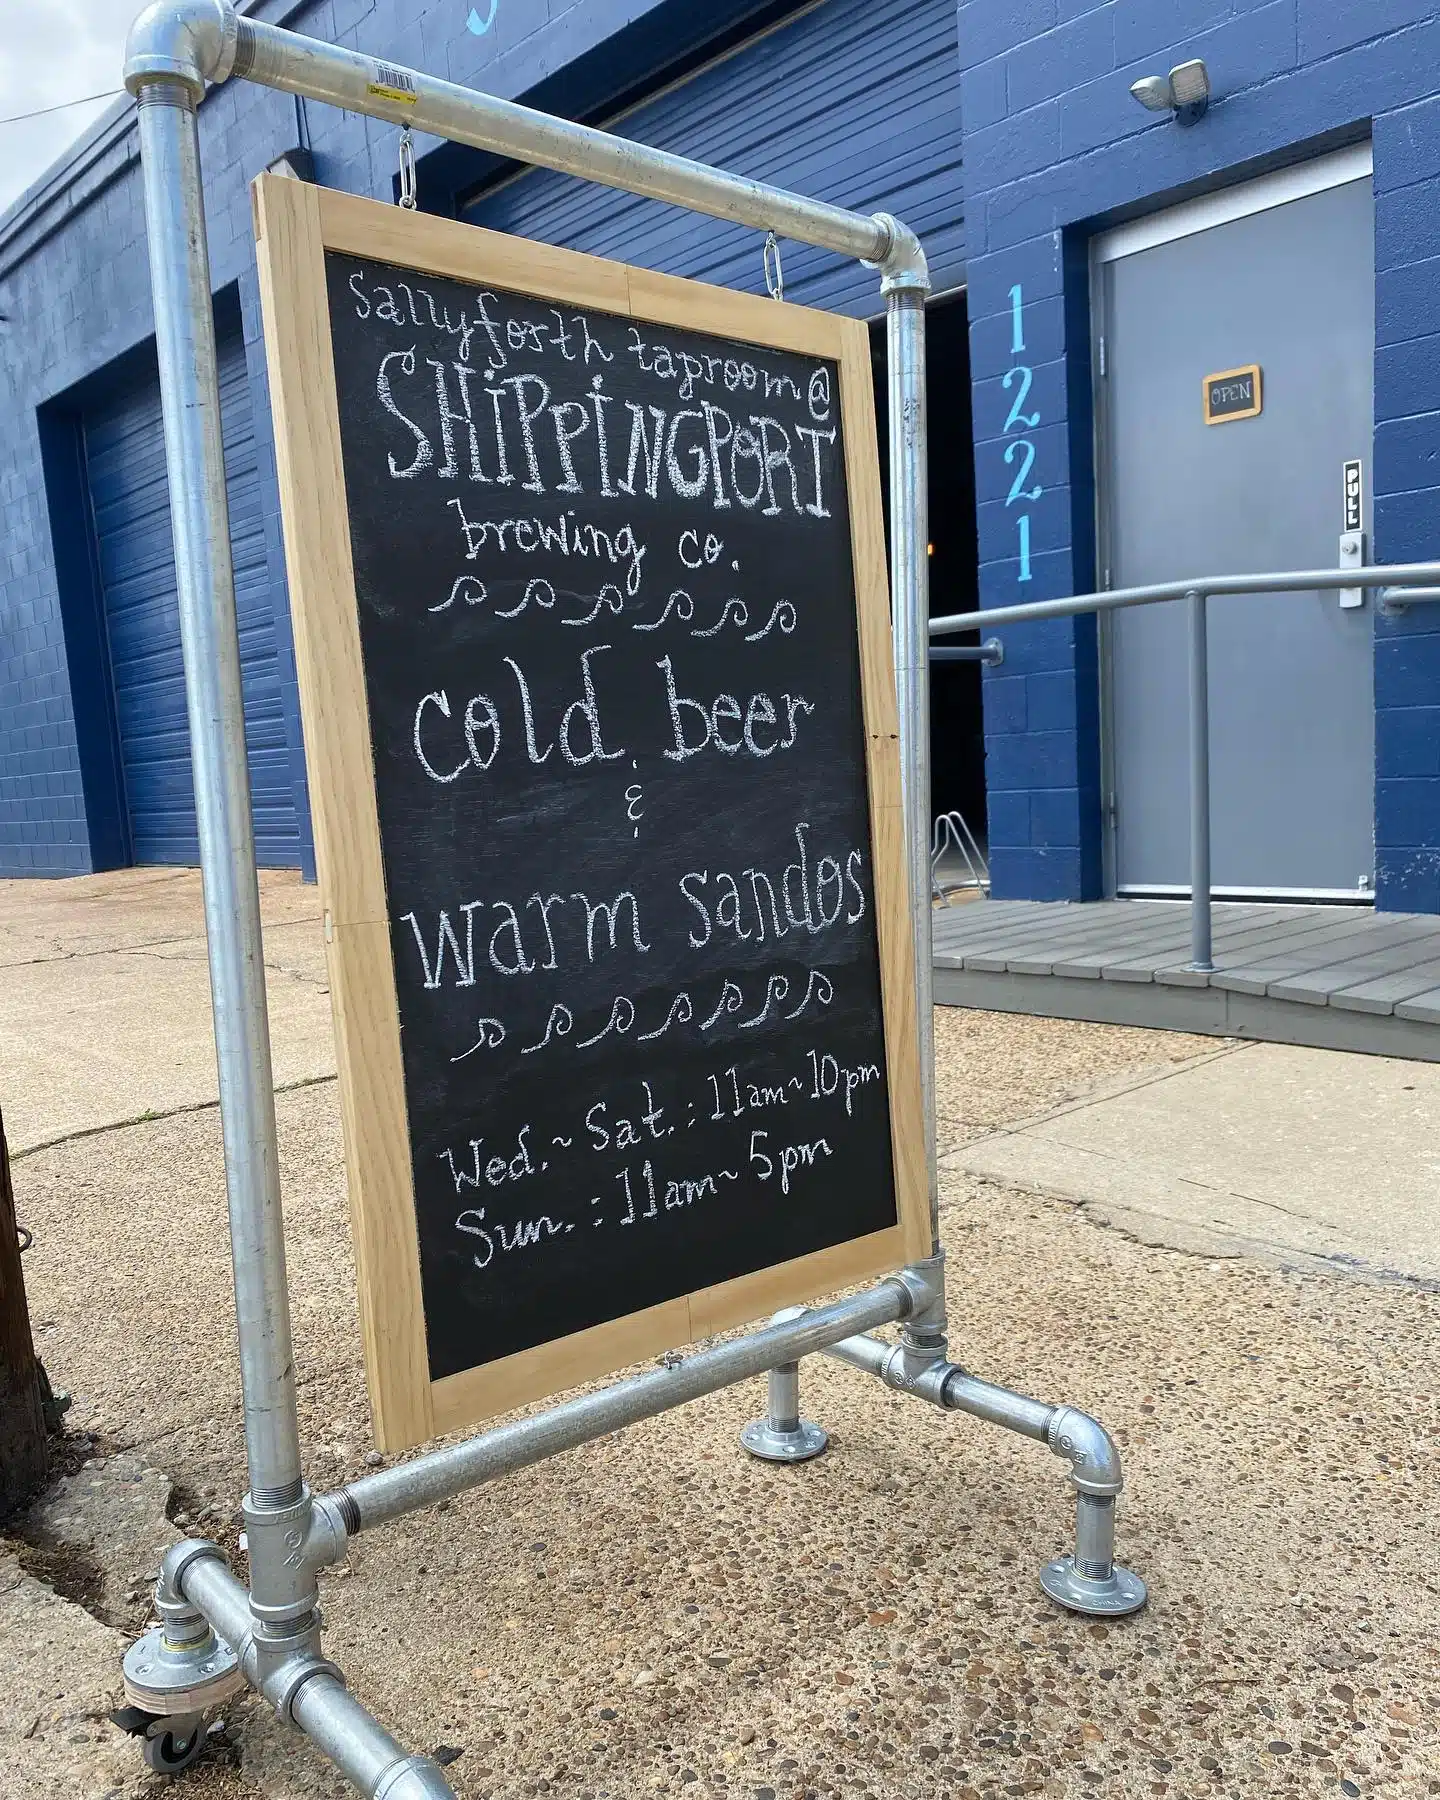 Sallyforth taproom @
SHiPPiNGPORT
brewing co.
cold beer
&
warm sandos
Wed. ~ Sat. : 11am ~ 10pm
Sun. : 11am ~ 5pm
1221
OPEN
PULL
CHINA